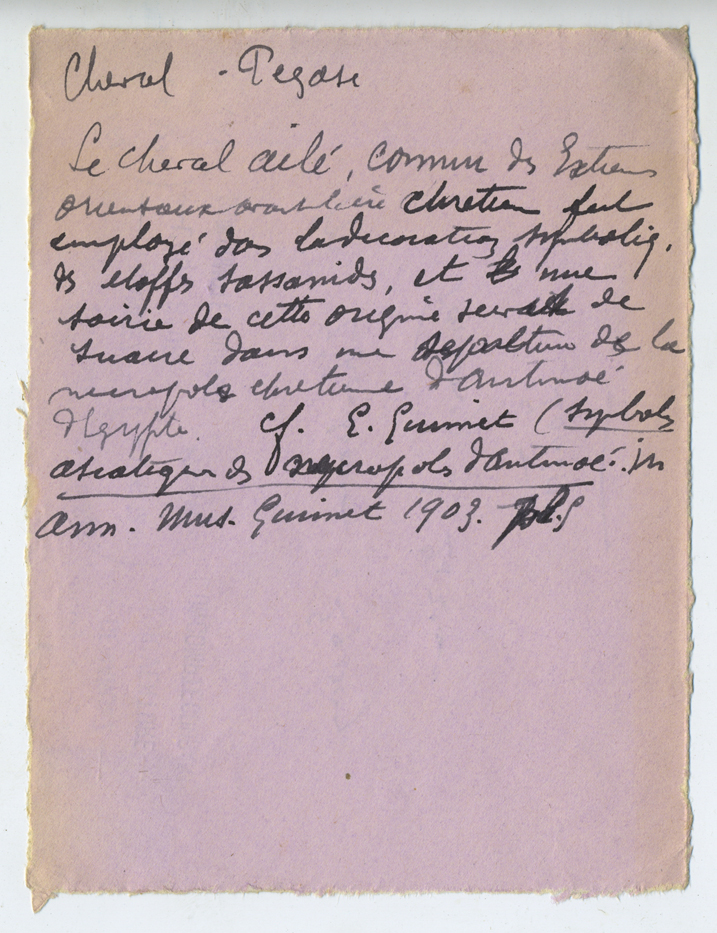 Cheval - Pegase
Le cheval ailé, commun des Extrems
orientaux avant l'ère chretien fut
employé dans la decoration symboliq.
ds etoffes sassanids, et une
soirie de cette origine servait de
suaire dans une sepulture de la
necropole chretienne d'Antinoé
d'Egypte. cf. E. Guimet (symbols
asiatiques ds necropols d'Antinoé. in
Ann. Mus. Guimet 1903.